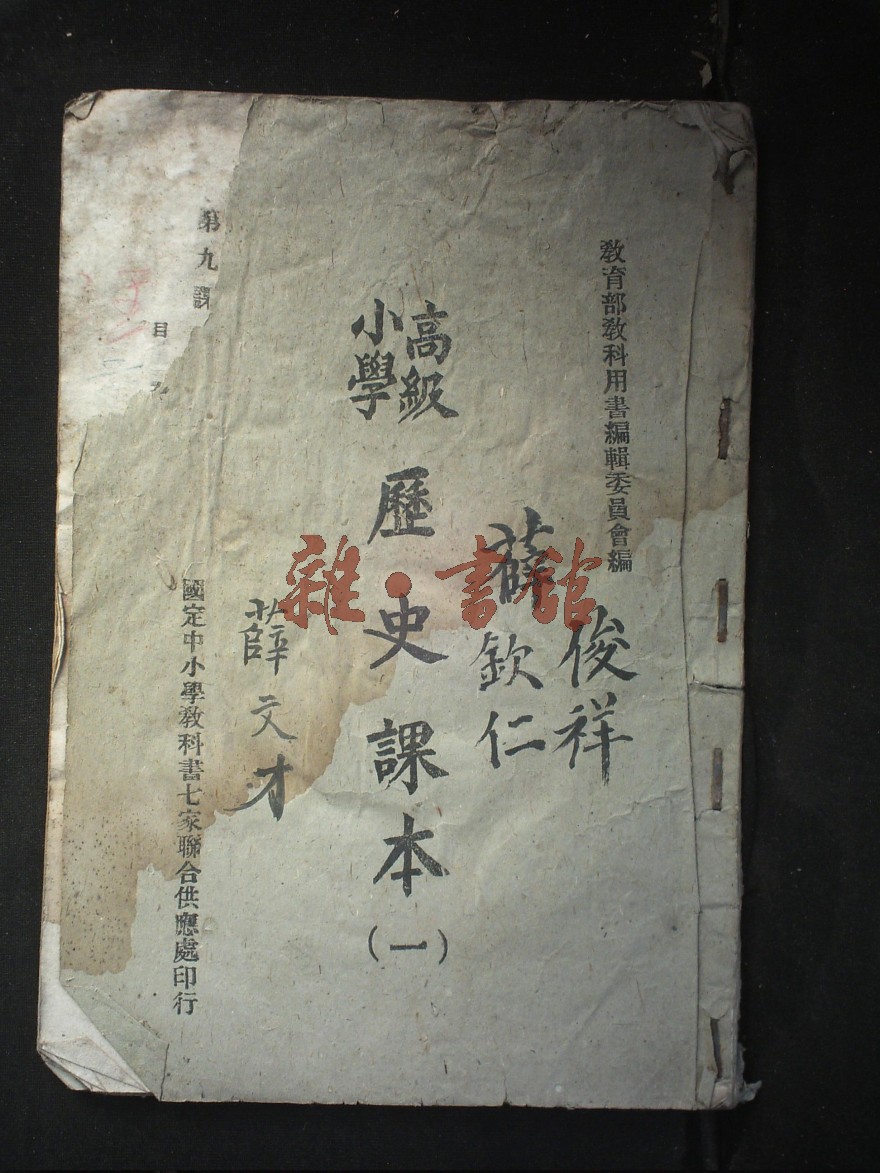 教育部教科用書編輯委員會編
高級
小學
歷史課本(一)
薛
俊祥
欽仁
薛文才
國定中小學教科書七家聯合供應處印行
第九課
目
雜·書館